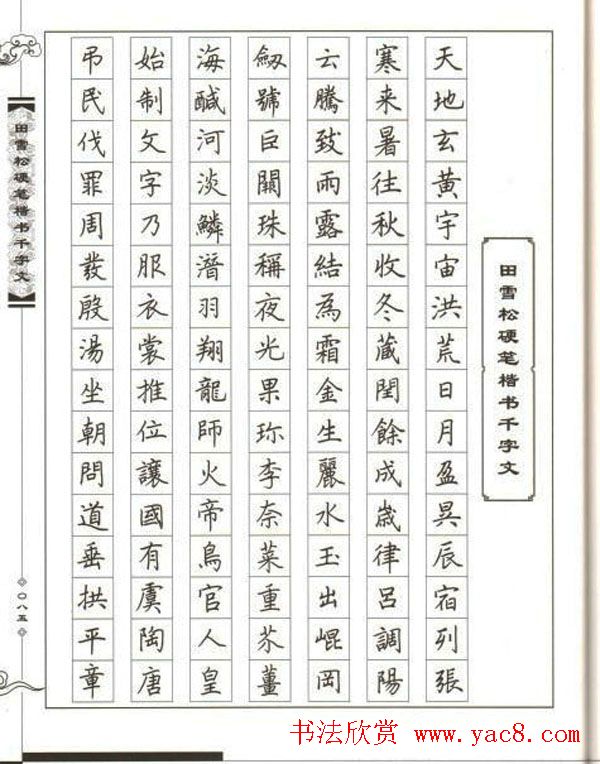 田雪松硬笔楷书千字文
天地玄黄宇宙洪荒日月盈昃辰宿列張
寒来暑往秋收冬藏閏餘成歲律呂調陽
云騰致雨露結為霜金生麗水玉出崐岡
劔號巨闕珠稱夜光果珎李奈菜重芥薑
海醎河淡鱗潛羽翔龍師火帝鳥官人皇
始制文字乃服衣裳推位讓國有虞陶唐
吊民伐罪周發殷湯坐朝問道垂拱平章
田雪松硬笔楷书千字文
〇八五
书法欣赏 www.yac8.com